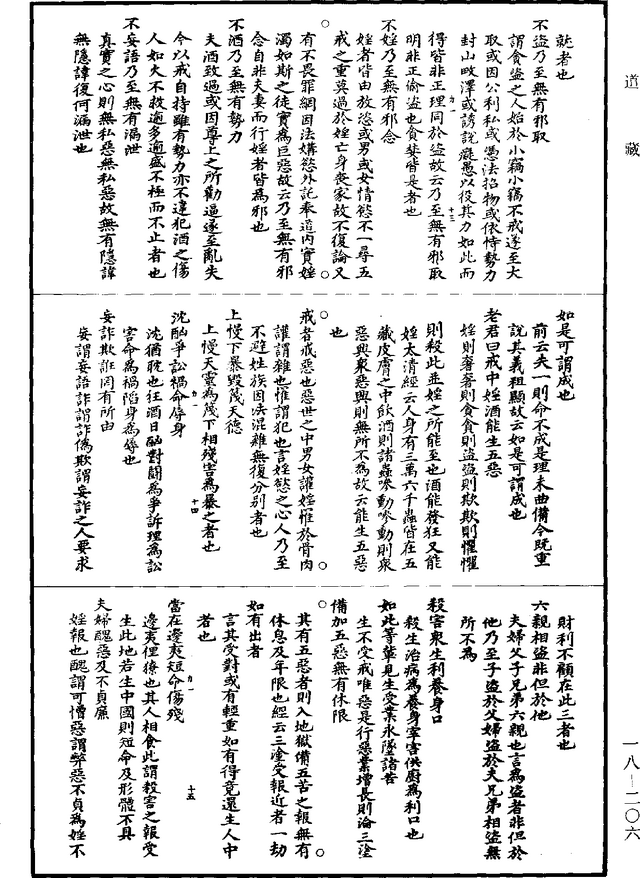 道藏
就者也
不盜乃至無有邪取
謂貪盜之人始於小竊小竊不戒遂至大
取或因公利私或憑法掐物或依恃勢力
封山收澤或誘說癡愚以役其力如此而
得皆非正理同於盜故云乃至無有邪取
明非正偷盜也貪婪皆是者也
不婬乃至無有邪念
婬者皆由放恣或男或女情慾不一尋五
戒之重莫過於婬亡身喪家故不復論又
有不畏罪網因法媾慾外託奉道內實婬
濁如斯之徒實為巨惡故云乃至無有邪
念自非夫妻而行婬者皆為邪也
不酒乃至無有勢力
夫酒致過或因尊上之所勸逼遂至亂失
今以戒自持雖有勢力亦不違犯酒之傷
人如火不救逾多逾盛不極而不止者也
不妄語乃至無有漏泄
真實之心則無私惡無私惡故無有隱諱
無隱諱復何漏泄也
如是可謂成也
前云夫一則命不成是理未曲備今既重
說其義祖顯故云如是可謂成也
老君曰戒中婬酒能生五惡
婬則奢奢則貪貪則盜盜則欺欺則懼懼
則殺此並婬之所能至也酒能發狂又能
婬太清經云人身有三萬六千蟲皆在五
藏皮膚之中飲酒則諸蟲嘇動嘇動則衆
惡興衆惡興則無所不為故云能生五惡
也
戒者戒惡也惡世之中男女讙婬罹於骨肉
讙謂雜也罹謂犯也言婬慾之心人乃至
不避姓族因法混雜無復分別者也
上慢下暴毀蔑天德
上慢天靈為蔑下相殘害為暴之者也
沈酗爭訟禍命辱身
沈猶耽也狂酒日酗對鬪為爭訴理為訟
害命為禍陷身為辱也
妄詐欺誷罔有所由
妄謂妄語詐謂詐偽欺謂妄詐之人要求
財利不顧在此三者也
六親相盜非但於他
夫婦父子兄弟六親也言為盜者非但於
他乃至子盜於父婦盜於夫兄弟相盜無
所不為
殺害衆生利養身口
殺生治病為養身宰害供廚為利口也
如此等輩見生受業永墜諸苦
生不受戒唯惡是行惡業增長則淪三塗
備加五惡無有休限
其有五惡者則入地獄備五苦之報無有
休息及年限也經云三塗受報近者一劫
如有出者
言其受對或有輕重如有得竟還生人中
者也
當在邊夷短命傷殘
邊夷俚獠也其人相食此謂殺害之報受
生此地若生中國則短命及形體不具
夫婦醜惡及不貞廉
婬報也醜謂可憎惡謂弊惡不貞為婬不
一八—二〇六